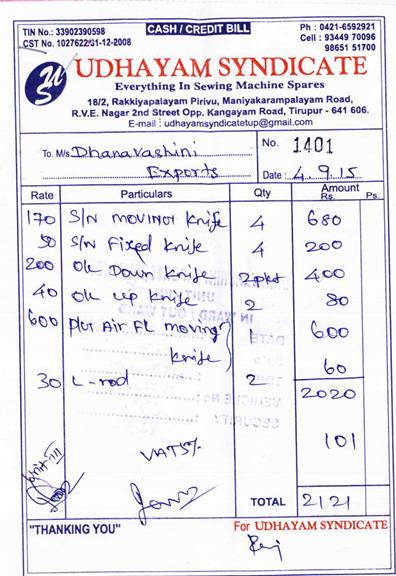 TIN No.: 33902390598
CST No. 1027622/01-12-2008
CASH / CREDIT BILL
Ph : 0421-6592921
Cell : 93449 70096
98651 51700
US
UDHAYAM SYNDICATE
Everything In Sewing Machine Spares
18/2, Rakkiyapalayam Pirivu, Maniyakarampalayam Road,
R.V.E. Nagar 2nd Street Opp. Kangayam Road, Tirupur - 641 606.
E-mail : udhayamsyndicatetup@gmail.com
To. M/s Dhanavashini
Exports
No. 1401
Date : 4.9.15
Rate Particulars Qty Amount
Rs. Ps.
170 S/N Moving Knife 4 680
50 S/N Fixed Knife 4 200
200 OK Down Knife 2pkt 400
40 OK up Knife 2 80
600 Air FL moving 1 600
knife
30 L-rod 2 60
2020
VAT5% 101
TOTAL 2121
"THANKING YOU"
For UDHAYAM SYNDICATE